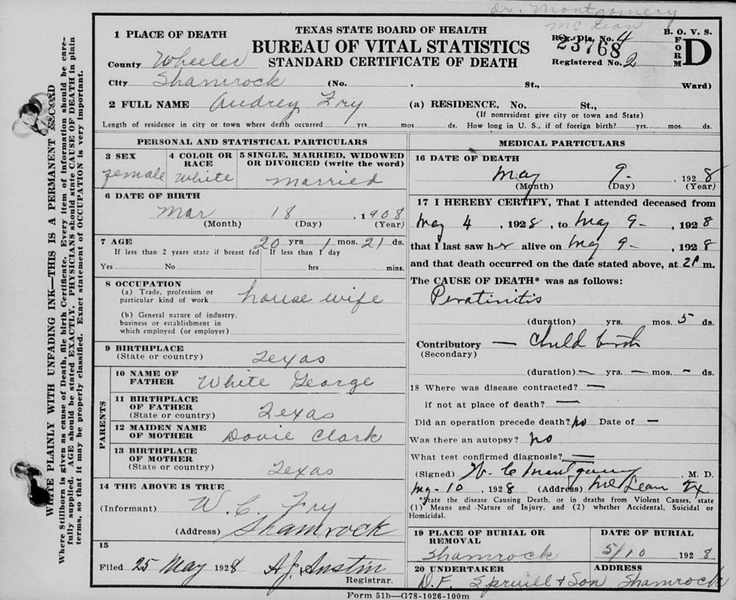 Dr. Montgomery
McLean
TEXAS STATE BOARD OF HEALTH
BUREAU OF VITAL STATISTICS
STANDARD CERTIFICATE OF DEATH
B. O. V. S.
FORM D
Reg. Dis. No. 4
23768
Registered No. 2
WRITE PLAINLY WITH UNFADING INK—THIS IS A PERMANENT RECORD
Where Stillborn is given as cause of Death, file birth Certificate. Every item of information should be care-
fully supplied. AGE should be stated EXACTLY. PHYSICIANS should state CAUSE OF DEATH in plain
terms, so that it may be properly classified. Exact statement of OCCUPATION is very important.
1 PLACE OF DEATH
County Wheeler
City Shamrock (No. . St., Ward)
2 FULL NAME Audrey Fry (a) RESIDENCE, No. St.,
(If nonresident give city or town and State)
Length of residence in city or town where death occurred yrs. mos. ds. How long in U. S., if of foreign birth? yrs. mos. ds.
PERSONAL AND STATISTICAL PARTICULARS
3 SEX 4 COLOR OR RACE 5 SINGLE, MARRIED, WIDOWED OR DIVORCED (write the word)
Female White Married
6 DATE OF BIRTH
Mar 18 , 1908
(Month) (Day) (Year)
7 AGE 20 yrs 1 mos. 21 ds.
If less than 2 years state if breast fed If less than 1 day
Yes No hrs. mins.
8 OCCUPATION
(a) Trade, profession or
particular kind of work house wife
(b) General nature of industry,
business or establishment in
which employed (or employer)
9 BIRTHPLACE
(State or country) Texas
PARENTS
10 NAME OF
FATHER White George
11 BIRTHPLACE
OF FATHER
(State or country) Texas
12 MAIDEN NAME
OF MOTHER Dovie Clark
13 BIRTHPLACE
OF MOTHER
(State or country) Texas
14 THE ABOVE IS TRUE
(Informant) W. C. Fry
(Address) Shamrock
15
Filed 25 May 1928 A.J. Austin
Registrar.
MEDICAL PARTICULARS
16 DATE OF DEATH
May 9- , 1928
(Month) (Day) (Year)
17 I HEREBY CERTIFY, That I attended deceased from
May 4 , 1928, to May 9- , 1928
that I last saw her alive on May 9- , 1928
and that death occurred on the date stated above, at 2P m.
The CAUSE OF DEATH* was as follows:
Peratinitis
(duration) yrs. mos. 5 ds.
Contributory — Child birth
(Secondary)
(duration) — yrs. — mos. — ds.
18 Where was disease contracted? —
if not at place of death? —
Did an operation precede death? no Date of —
Was there an autopsy? no
What test confirmed diagnosis? —
(Signed) W. C. Montgomery M. D.
May-10 , 1928 (Address) McLean Tx
*State the disease Causing Death, or in deaths from Violent Causes, state
(1) Means and Nature of Injury, and (2) whether Accidental, Suicidal or
Homicidal.
19 PLACE OF BURIAL OR REMOVAL DATE OF BURIAL
Shamrock 5/10 1928
20 UNDERTAKER ADDRESS
D. F. Spruill & Son Shamrock
Form 51b—G78-1026-100m